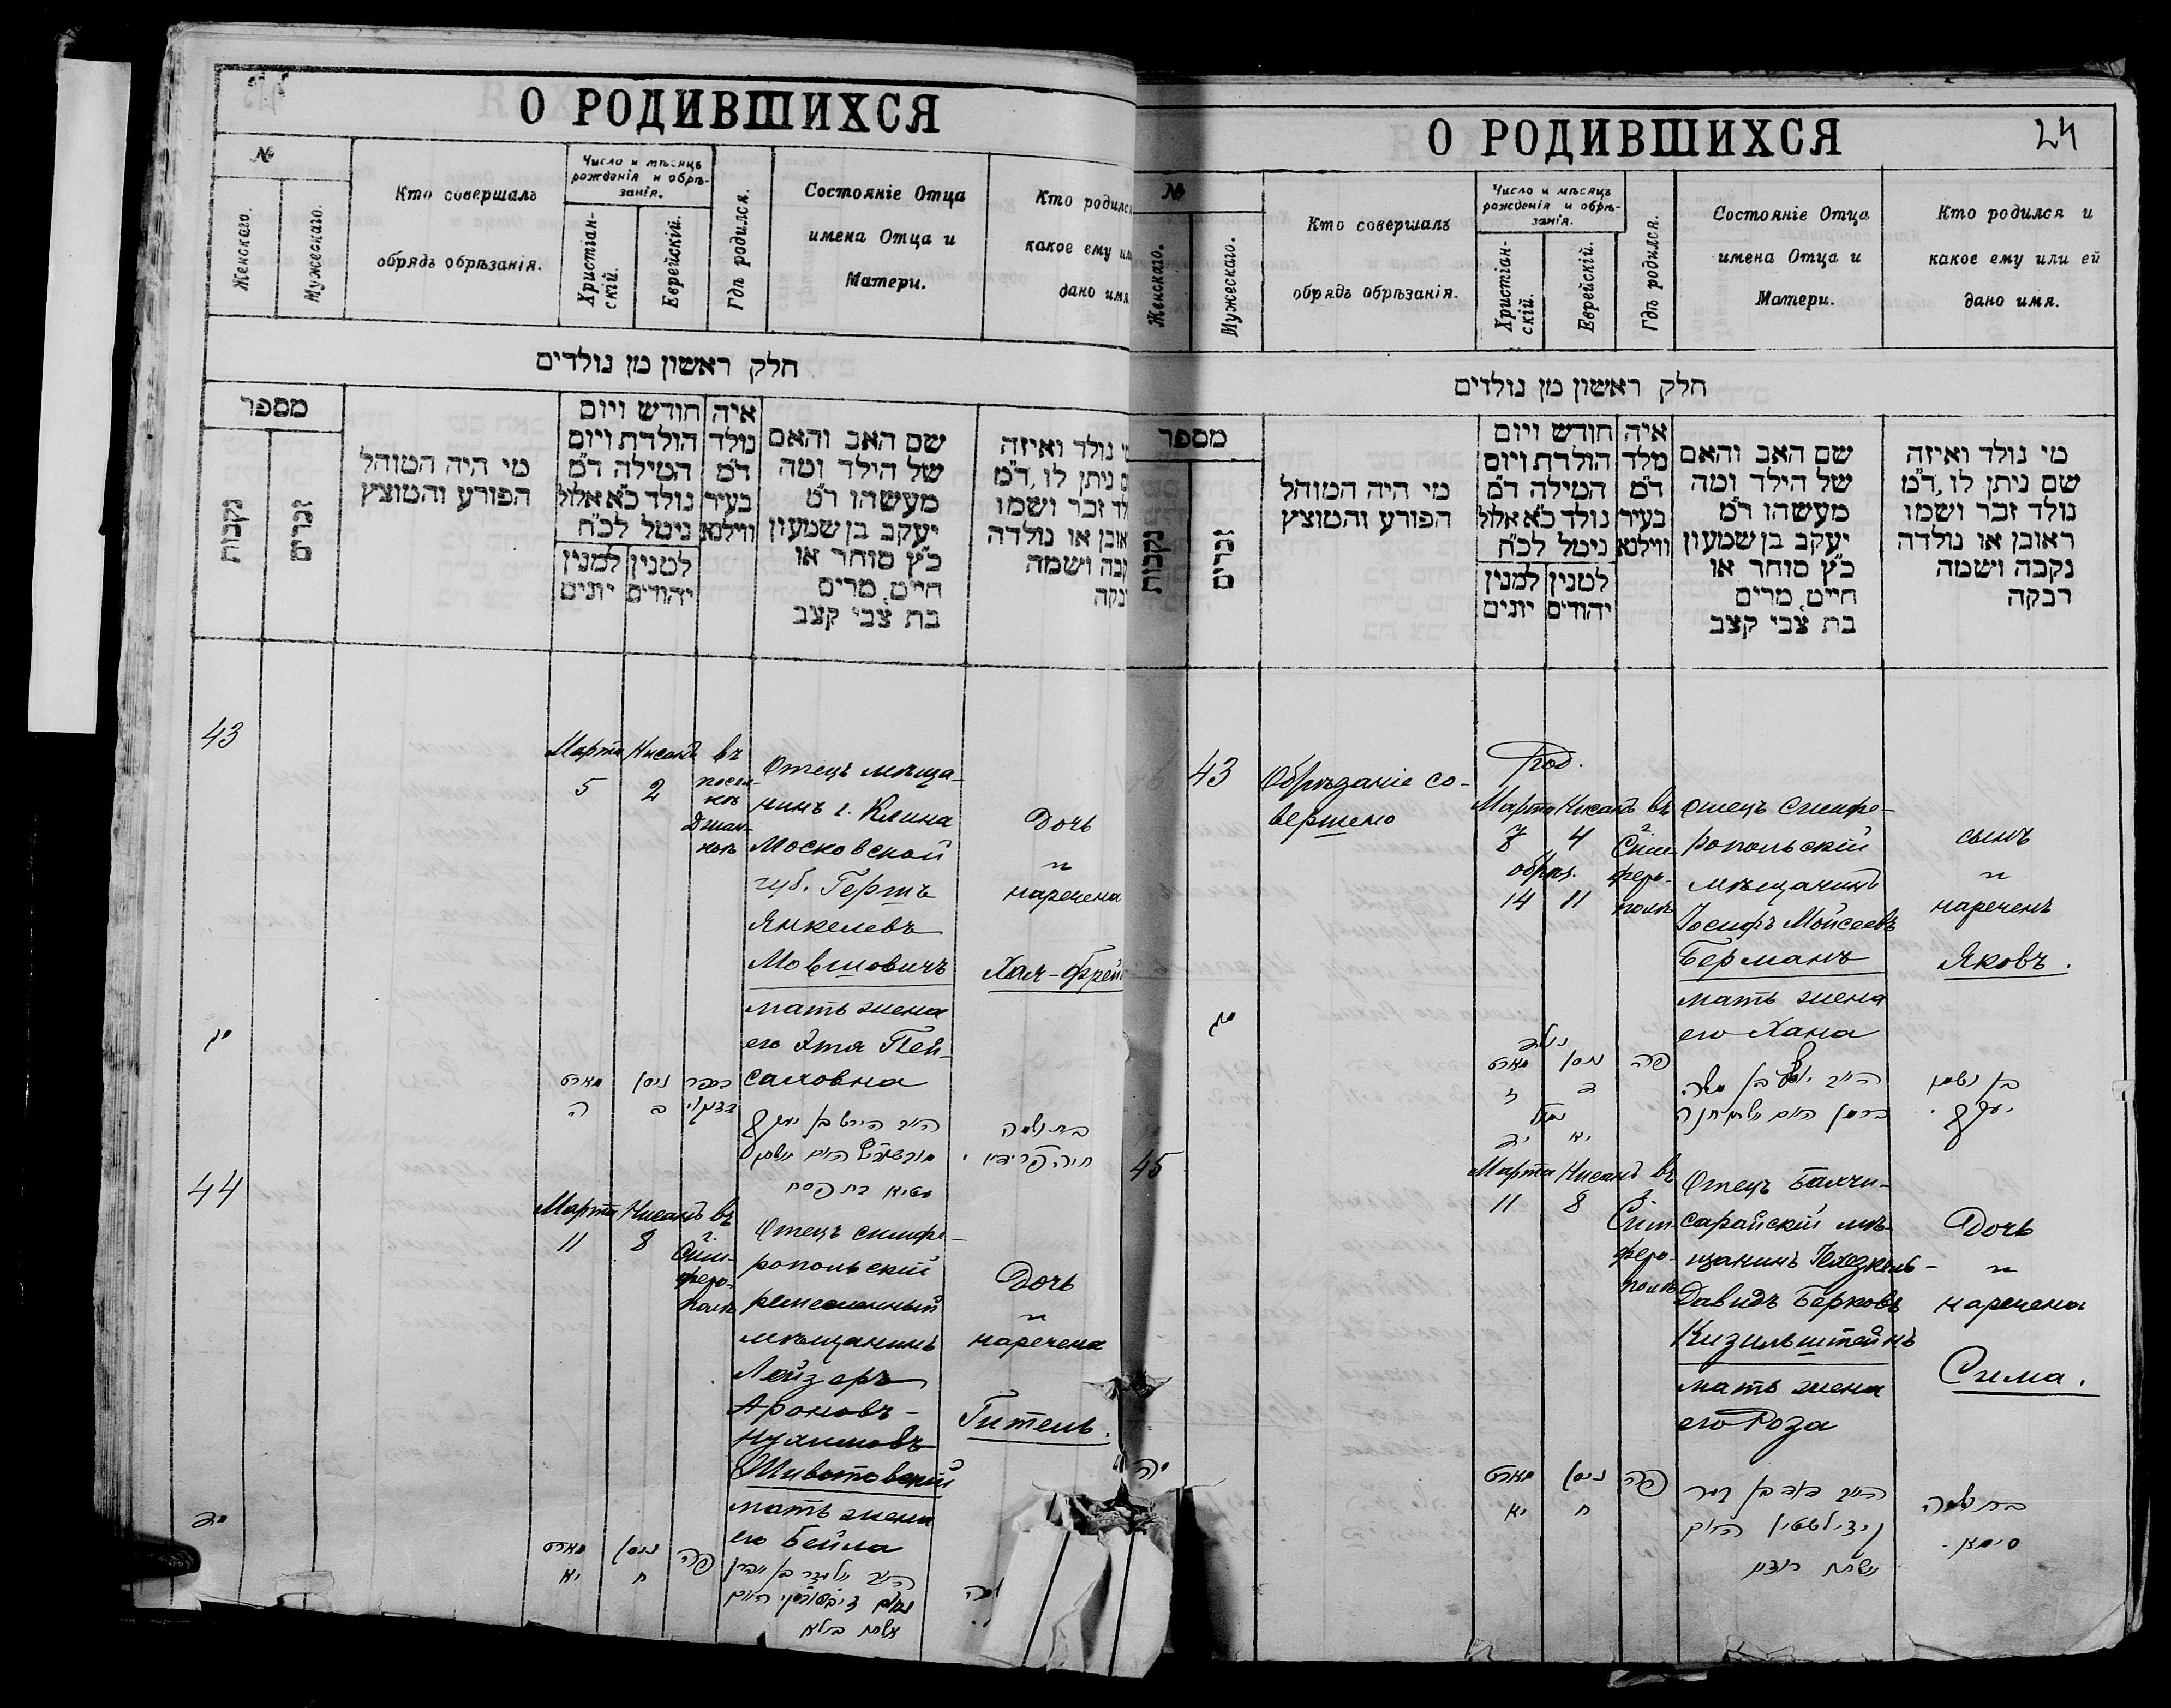 О РОДИВШИХСЯ
№
Женскаго.
Мужескаго.
Кто совершалъ
обрядъ обрѣзанія.
Число и мѣсяцъ
рожденія и обрѣ-
занія.
Христіан-
скій.
Еврейскій.
Гдѣ родился.
Состояніе Отца
имена Отца и
Матери.
Кто родился
какое ему или
дано имя
חלק ראשון מן נולדים
מספר
נקבות
זכרים
מי היה המוהל
הפורע והמוצץ
חודש ויום
הולדת ויום
המילה ד"מ
נולד כ"א אלול
נימל לכ"ח
למנין למנין
יהודים יונים
איה
נולד
ד"מ
בעיר
ווילנא
שם האב והאם
של הילד ומה
מעשהו ד"מ
יעקב בן שמעון
כ"ץ סוחר או
חייט, מרים
בת צבי קצב
נולד ואיזה
ניתן לו, ד"מ
זכר ושמו
או נולדה
ושמה
43
Марта
5
Нисанъ
2
въ
посел-
кѣ
Джан-
коѣ
Отецъ мѣща-
нинъ г. Клина
Московской
губ. Гершъ
Янкелевъ
Мовшовичъ
мать жена
его Этя Пей-
саховна
Дочь
и
наречена
Хая-Фрей
מג
מארט
ה
ניסן
ב
44
Марта
11
Нисанъ
8
въ
г.
Сим-
феро-
полѣ
Отецъ симфе-
ропольскій
ремесленный
мѣщанинъ
Лейзеръ
Ароновъ-
Нухимовъ
Животовскій
мать жена
его Бейла
Дочь
и
наречена
Гитель.
מד
מארט
יא
ניסן
ח
О РОДИВШИХСЯ
24
№
Женскаго.
Мужескаго.
Кто совершалъ
обрядъ обрѣзанія.
Число и мѣсяцъ
рожденія и обрѣ-
занія.
Христіан-
скій.
Еврейскій.
Гдѣ родился.
Состояніе Отца
имена Отца и
Матери.
Кто родился и
какое ему или ей
дано имя.
חלק ראשון מן נולדים
מספר
נקבות
זכרים
מי היה המוהל
הפורע והמוצץ
חודש ויום
הולדת ויום
המילה ד"מ
נולד כ"א אלול
נימל לכ"ח
למנין למנין
יהודים יונים
איה
נולד
ד"מ
בעיר
ווילנא
שם האב והאם
של הילד ומה
מעשהו ד"מ
יעקב בן שמעון
כ"ץ סוחר או
חייט, מרים
בת צבי קצב
מי נולד ואיזה
שם ניתן לו, ד"מ
נולד זכר ושמו
ראובן או נולדה
נקבה ושמה
רבקה
43
Обрѣзаніе со-
вершено
Род.
Марта
7
Нисанъ
4
обрѣз.
14
11
въ
г.
Сим-
феро-
полѣ
Отецъ симфе-
ропольскій
мѣщанинъ
Іосифъ Мойсеевъ
Берманъ
мать жена
его Хана
сынъ
и
нареченъ
Яковъ.
מג
נולד
מארט
ז
ניסן
ד
נימול
יד
יא
הא' יוסף בן משה
בערמן האם אשתו חנה
בן ושמו
יעקב.
45
Марта
11
Нисанъ
8
въ
г.
Сим-
феро-
полѣ
Отецъ Бахчи-
сарайскій мѣ-
щанинъ Хехезкель-
Давидъ Берковъ
Кизильштейнъ
мать жена
его Роза
Дочь
и
наречена
Сима.
מה
מארט
יא
ניסן
ח
בת ושמה
סימא.